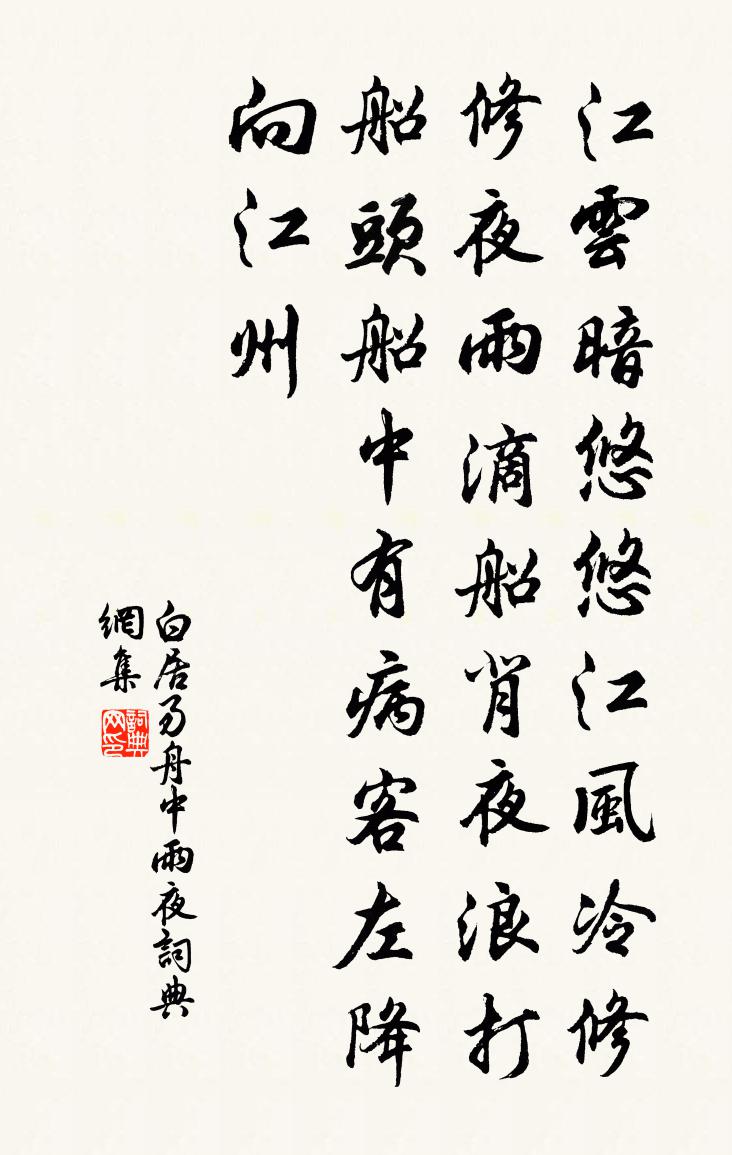 江雲暗悠悠江風冷修
修夜雨滴船背夜浪打
船頭船中有病客左降
向江州
白居易舟中雨夜詞典
網集
詞典
网印